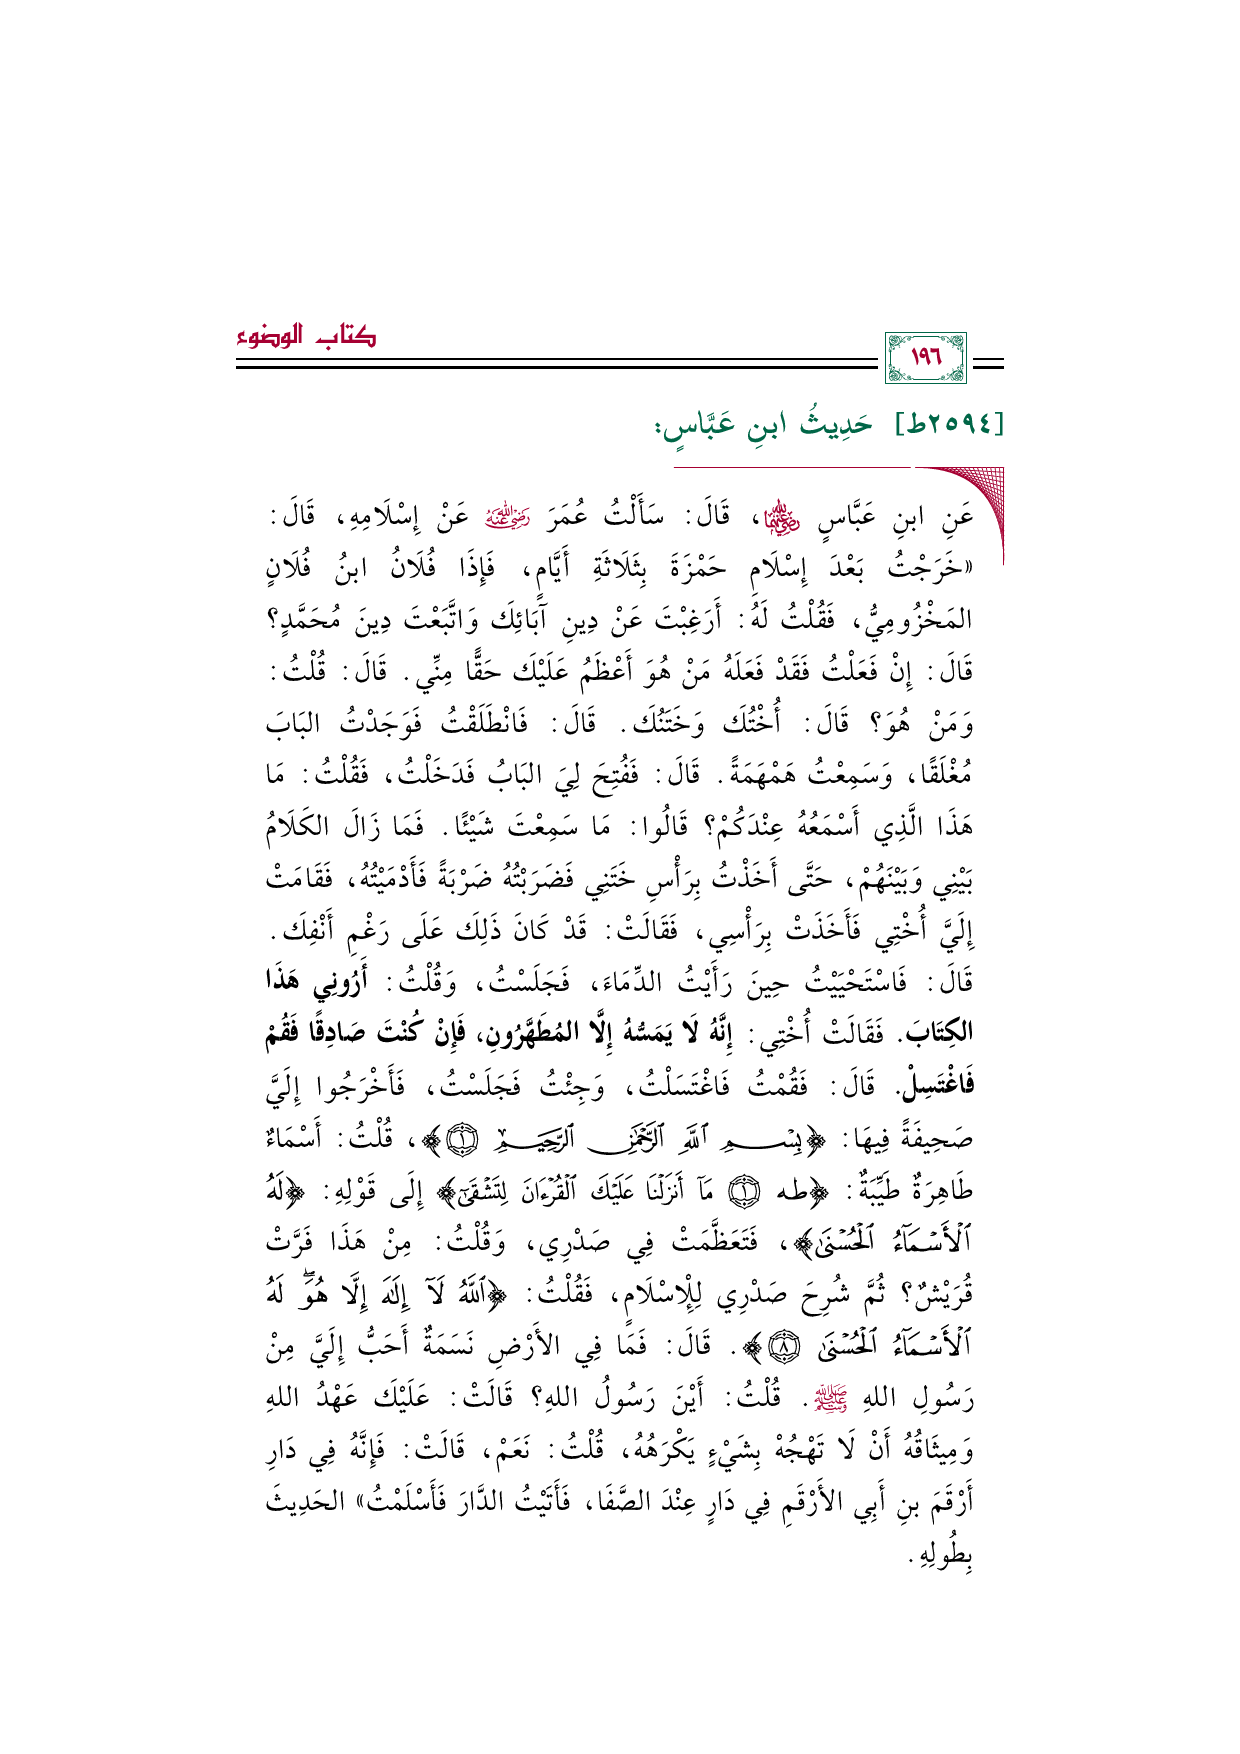 كتاب الوضوء
١٩٦
[٢٥٩٤ط] حَدِيثُ ابنِ عَبَّاسٍ:
عَنِ ابنِ عَبَّاسٍ رضي الله عنهما، قَالَ: سَأَلْتُ عُمَرَ رضي الله عنه عَنْ إِسْلَامِهِ، قَالَ:
«خَرَجْتُ بَعْدَ إِسْلَامِ حَمْزَةَ بِثَلَاثَةِ أَيَّامٍ، فَإِذَا فُلَانُ ابنُ فُلَانٍ
المَخْزُومِيُّ، فَقُلْتُ لَهُ: أَرَغِبْتَ عَنْ دِينِ آبَائِكَ وَاتَّبَعْتَ دِينَ مُحَمَّدٍ؟
قَالَ: إِنْ فَعَلْتُ فَقَدْ فَعَلَهُ مَنْ هُوَ أَعْظَمُ عَلَيْكَ حَقًّا مِنِّي. قَالَ: قُلْتُ:
وَمَنْ هُوَ؟ قَالَ: أُخْتُكَ وَخَتَنُكَ. قَالَ: فَانْطَلَقْتُ فَوَجَدْتُ البَابَ
مُغْلَقًا، وَسَمِعْتُ هَمْهَمَةً. قَالَ: فَفُتِحَ لِيَ البَابُ فَدَخَلْتُ، فَقُلْتُ: مَا
هَذَا الَّذِي أَسْمَعُهُ عِنْدَكُمْ؟ قَالُوا: مَا سَمِعْتَ شَيْئًا. فَمَا زَالَ الكَلَامُ
بَيْنِي وَبَيْنَهُمْ، حَتَّى أَخَذْتُ بِرَأْسِ خَتَنِي فَضَرَبْتُهُ ضَرْبَةً فَأَدْمَيْتُهُ، فَقَامَتْ
إِلَيَّ أُخْتِي فَأَخَذَتْ بِرَأْسِي، فَقَالَتْ: قَدْ كَانَ ذَلِكَ عَلَى رَغْمِ أَنْفِكَ.
قَالَ: فَاسْتَحْيَيْتُ حِينَ رَأَيْتُ الدِّمَاءَ، فَجَلَسْتُ، وَقُلْتُ: أَرُونِي هَذَا
الكِتَابَ. فَقَالَتْ أُخْتِي: إِنَّهُ لَا يَمَسُّهُ إِلَّا المُطَهَّرُونِ، فَإِنْ كُنْتَ صَادِقًا فَقُمْ
فَاغْتَسِلْ. قَالَ: فَقُمْتُ فَاغْتَسَلْتُ، وَجِئْتُ فَجَلَسْتُ، فَأَخْرَجُوا إِلَيَّ
صَحِيفَةً فِيهَا: ﴿بِسْمِ ٱللَّهِ ٱلرَّحْمَٰنِ ٱلرَّحِيمِ ١﴾، قُلْتُ: أَسْمَاءٌ
طَاهِرَةٌ طَيِّبَةٌ: ﴿طه ١ مَآ أَنزَلْنَا عَلَيْكَ ٱلْقُرْءَانَ لِتَشْقَىٰٓ﴾ إِلَى قَوْلِهِ: ﴿لَهُ
ٱلْأَسْمَآءُ ٱلْحُسْنَىٰ﴾، فَتَعَظَّمَتْ فِي صَدْرِي، وَقُلْتُ: مِنْ هَذَا فَرَّتْ
قُرَيْشٌ؟ ثُمَّ شُرِحَ صَدْرِي لِلْإِسْلَامِ، فَقُلْتُ: ﴿ٱللَّهُ لَآ إِلَٰهَ إِلَّا هُوَۖ لَهُ
ٱلْأَسْمَآءُ ٱلْحُسْنَىٰ ٨﴾. قَالَ: فَمَا فِي الأَرْضِ نَسَمَةٌ أَحَبُّ إِلَيَّ مِنْ
رَسُولِ اللهِ ﷺ. قُلْتُ: أَيْنَ رَسُولُ اللهِ؟ قَالَتْ: عَلَيْكَ عَهْدُ اللهِ
وَمِيثَاقُهُ أَنْ لَا تَهْجُهْ بِشَيْءٍ يَكْرَهُهُ، قُلْتُ: نَعَمْ، قَالَتْ: فَإِنَّهُ فِي دَارِ
أَرْقَمَ بنِ أَبِي الأَرْقَمِ فِي دَارٍ عِنْدَ الصَّفَا، فَأَتَيْتُ الدَّارَ فَأَسْلَمْتُ» الحَدِيثَ
بِطُولِهِ.